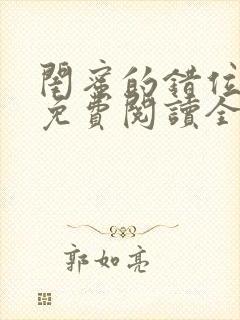 閨蜜的錯位
免費閱讀全
郭如亮